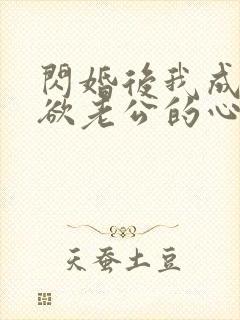 閃婚後我成
欲老公的心
天蚕土豆